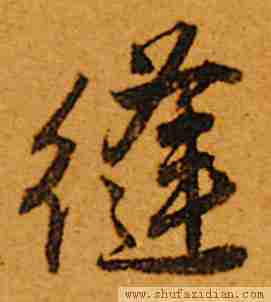 縫
www.shufazidian.com